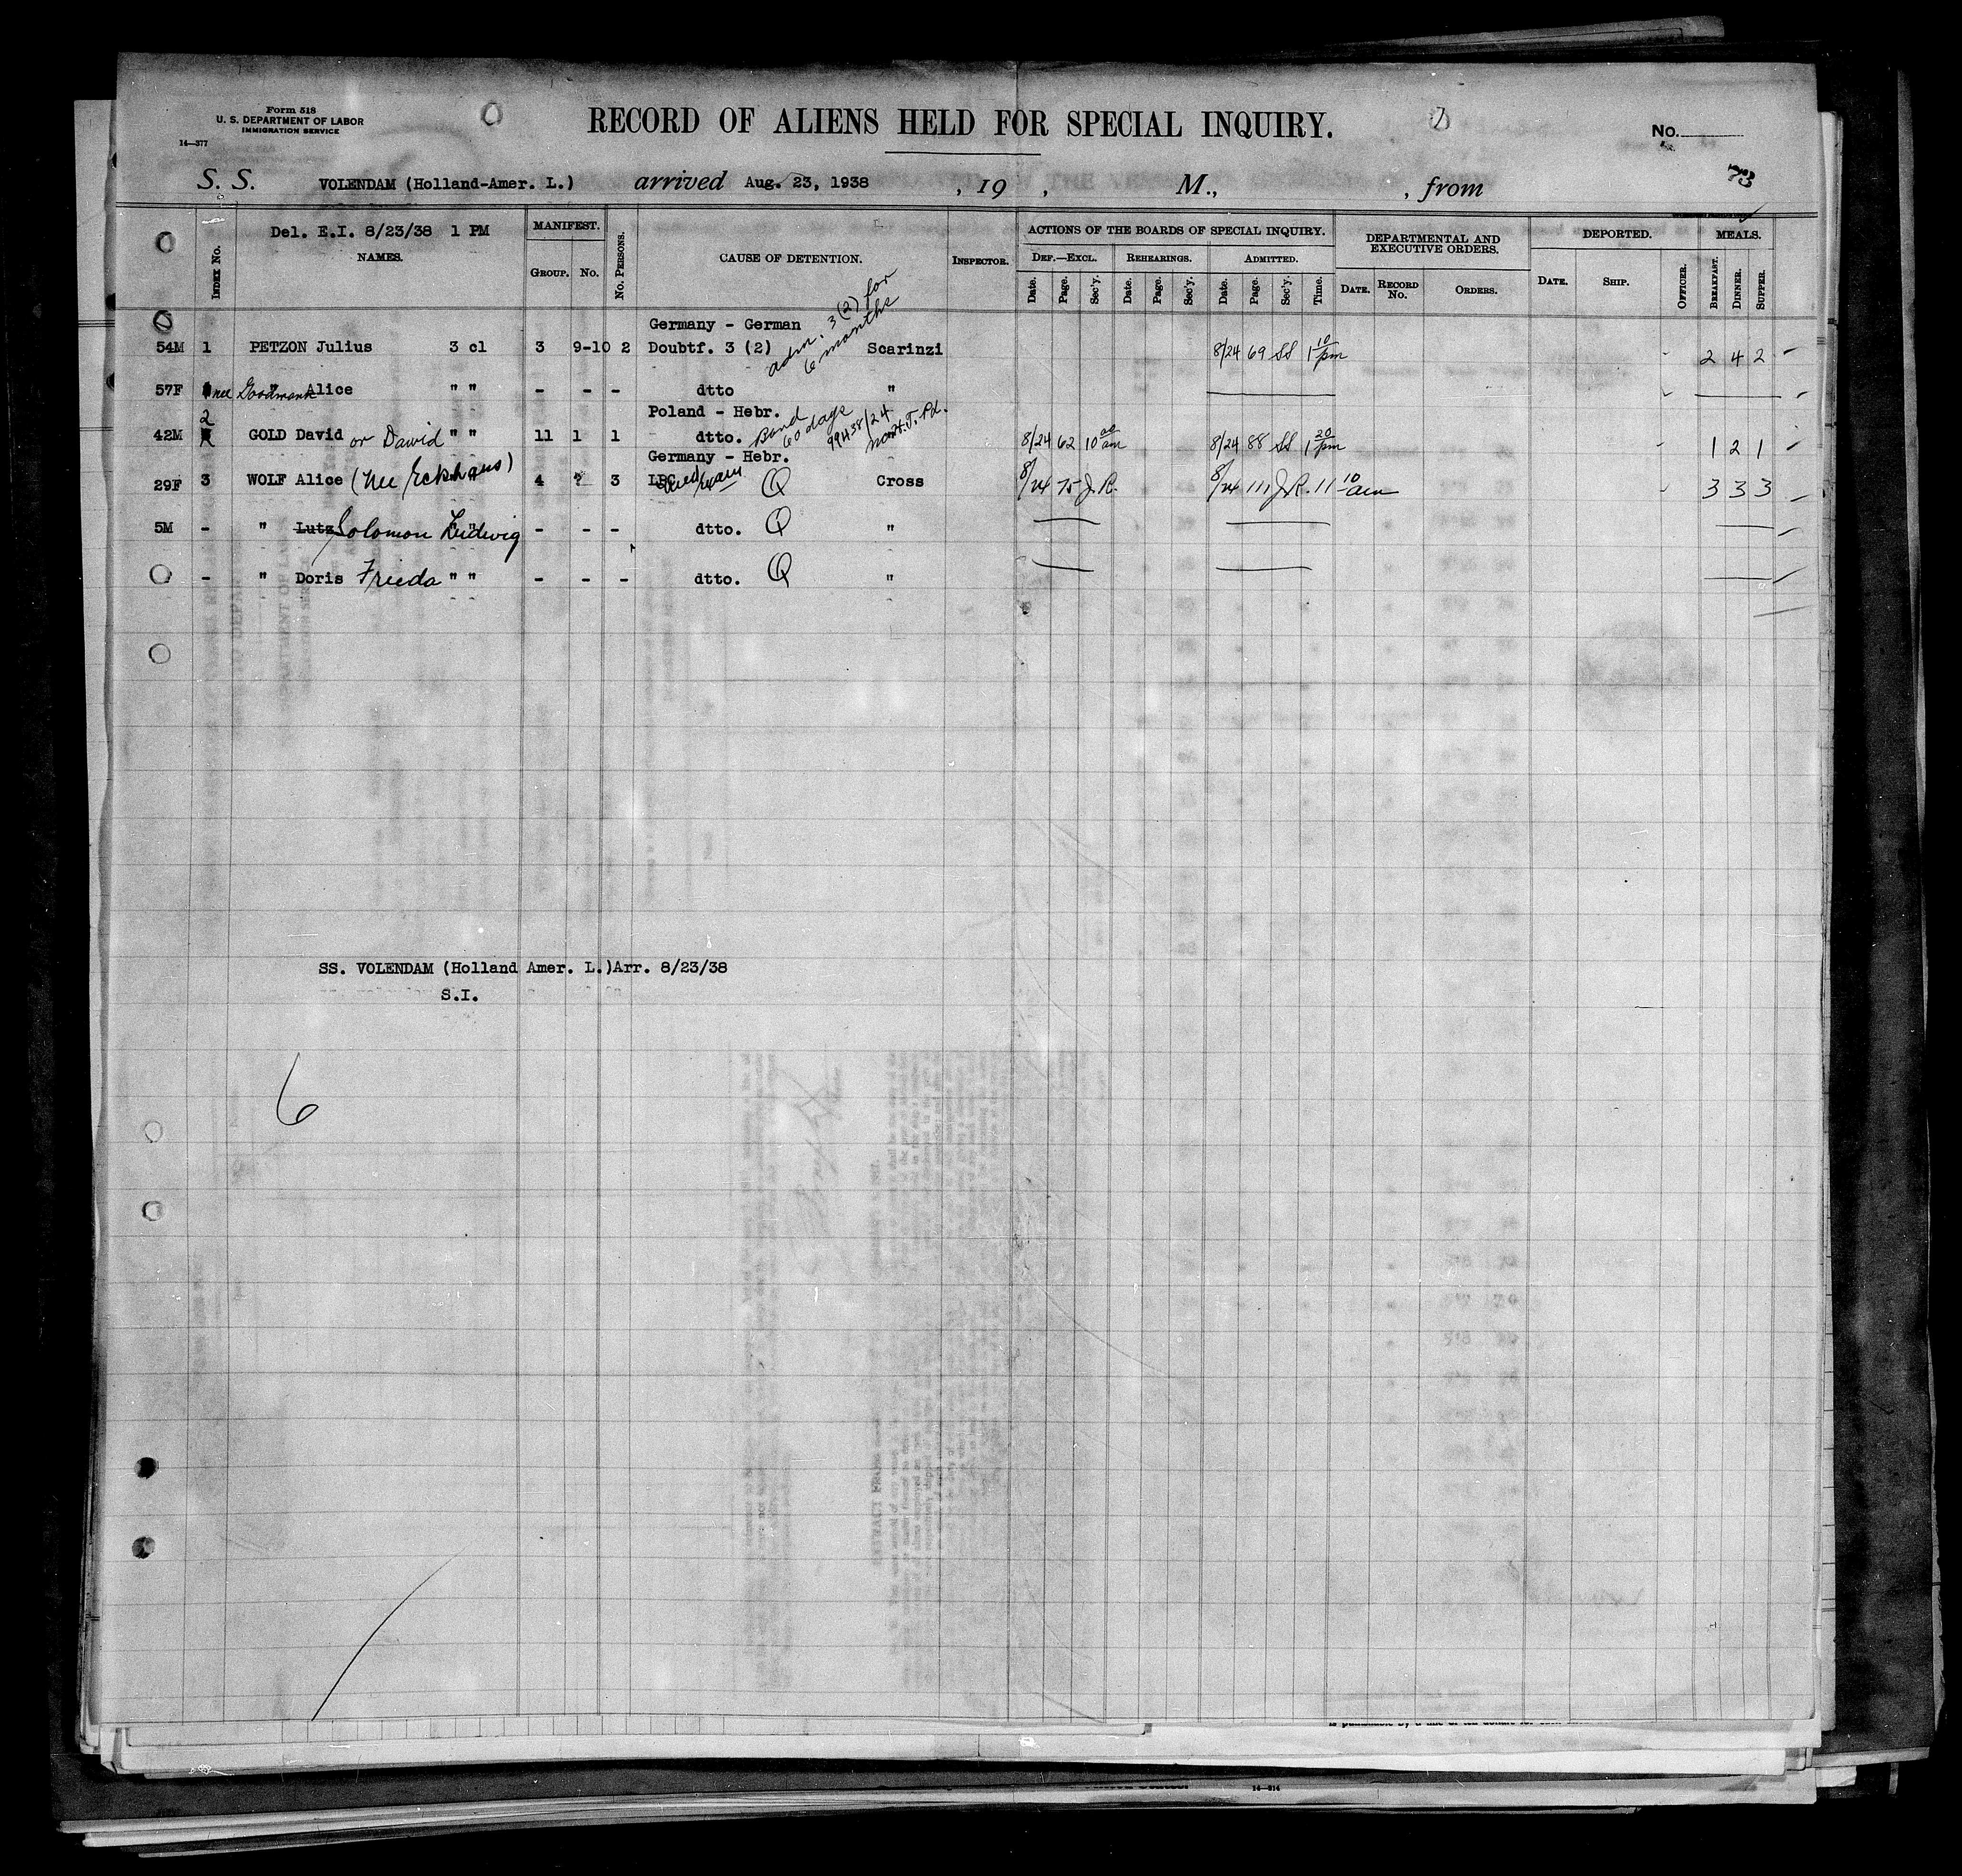 Form 518
U. S. DEPARTMENT OF LABOR
IMMIGRATION SERVICE
14—377
RECORD OF ALIENS HELD FOR SPECIAL INQUIRY.
No.
73
S. S. VOLENDAM (Holland-Amer. L.) arrived Aug. 23, 1938 , 19 , M., , from
Del. E.I. 8/23/38 1 PM
INDEX No. NAMES. MANIFEST. GROUP. No. No. PERSONS. CAUSE OF DETENTION. INSPECTOR.
ACTIONS OF THE BOARDS OF SPECIAL INQUIRY.
DEF.—EXCL. REHEARINGS. ADMITTED.
Date. Page. Sec'y. Date. Page. Sec'y. Date. Page. Sec'y. Time.
DEPARTMENTAL AND EXECUTIVE ORDERS.
DATE. RECORD No. ORDERS.
DEPORTED.
DATE. SHIP. OFFICER.
MEALS.
BREAKFAST. DINNER. SUPPER.
Germany - German
adm. 3 (2) for
6 months
54M 1 PETZON Julius 3 cl 3 9-10 2 Doubtf. 3 (2) Scarinzi 8/24 69 SS 1 10 pm 2 4 2
57F nee Alice " " - - - dtto "
Poland - Hebr.
42M 2 GOLD David or Dawid " " 11 1 1 dtto. Bond 60 days 8/24 62 10 00 am 8/24 88 SS 1 20 pm 1 2 1
Germany - Hebr.
29F 3 WOLF Alice (nee Eckhaus) " 4 ? 3 LPC Q Cross 8/24 75 J.R. 8/24 111 J.R. 11 10 am 3 3 3
5M - " Lutz Solomon Ludwig " " - - - dtto. Q "
- " Doris Frieda " " - - - dtto. Q "
SS. VOLENDAM (Holland Amer. L.)Arr. 8/23/38
S.I.
6
14—814